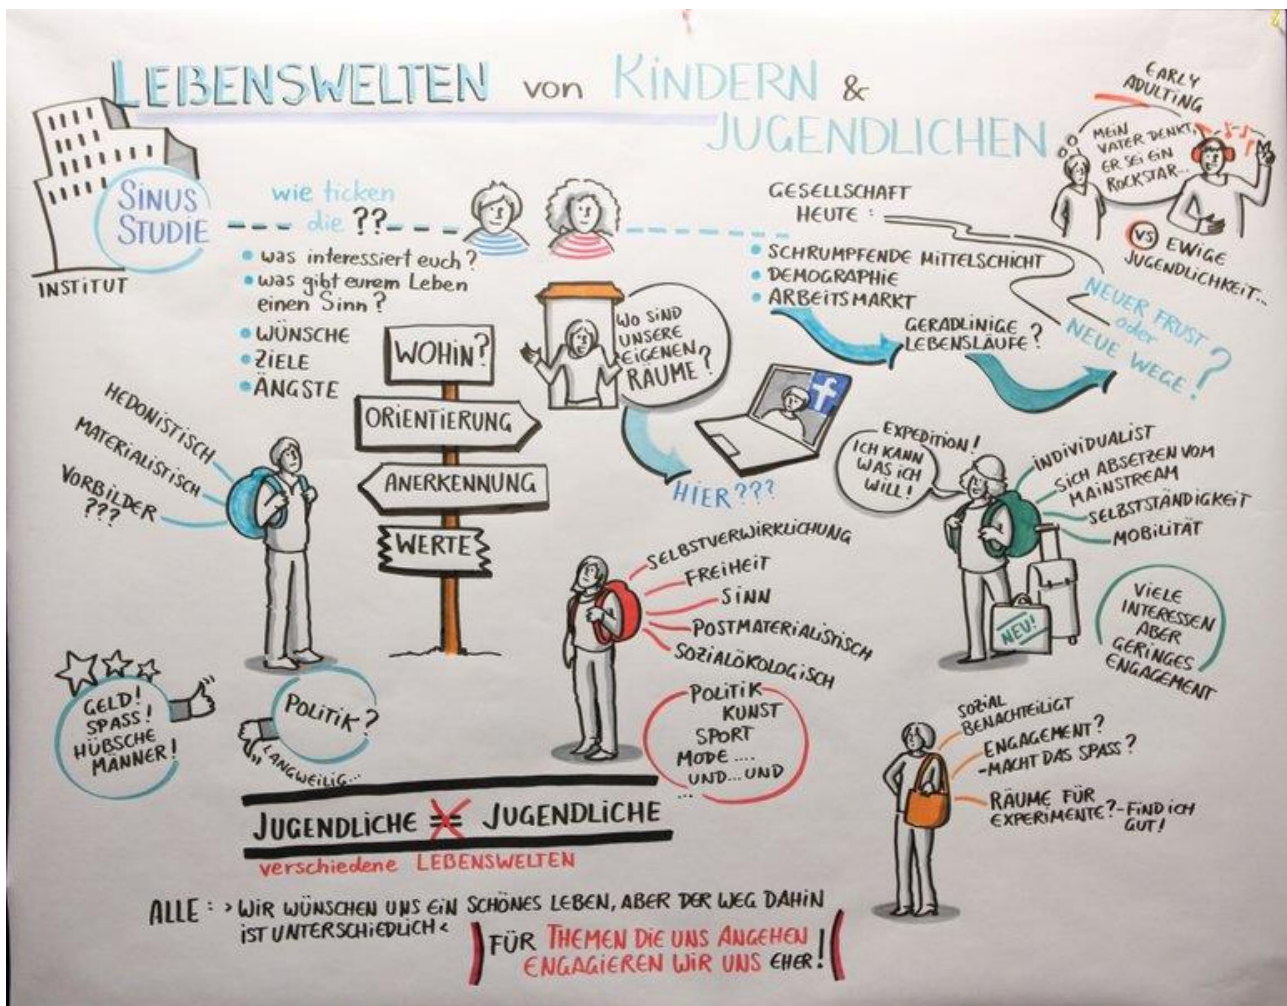 LEBENSWELTEN von KINDERN &
JUGENDLICHEN
SINUS
STUDIE
INSTITUT
wie ticken
die ??
was interessiert euch?
was gibt eurem Leben
einen Sinn?
WÜNSCHE
ZIELE
ÄNGSTE
WOHIN?
ORIENTIERUNG
ANERKENNUNG
WERTE
WO SIND
UNSERE
EIGENEN
RÄUME?
HIER???
f
GESELLSCHAFT
HEUTE:
SCHRUMPFENDE MITTELSCHICHT
DEMOGRAPHIE
ARBEITSMARKT
GERADLINIGE
LEBENSLÄUFE?
NEUER FRUST
oder
NEUE WEGE?
EARLY
ADULTING
MEIN
VATER DENKT,
ER SEI EIN
ROCKSTAR...
VS EWIGE
JUGENDLICHKEIT...
HEDONISTISCH
MATERIALISTISCH
VORBILDER
???
GELD!
SPASS!
HÜBSCHE
MÄNNER!
POLITIK?
LANGWEILIG...
SELBSTVERWIRKLICHUNG
FREIHEIT
SINN
POSTMATERIALISTISCH
SOZIALÖKOLOGISCH
POLITIK
KUNST
SPORT
MODE ....
UND...UND
...
EXPEDITION!
ICH KANN
WAS ICH
WILL!
INDIVIDUALIST
SICH ABSETZEN VOM
MAINSTREAM
SELBSTSTÄNDIGKEIT
MOBILITÄT
NEU!
VIELE
INTERESSEN
ABER
GERINGES
ENGAGEMENT
SOZIAL
BENACHTEILIGT
ENGAGEMENT?
-MACHT DAS SPASS?
RÄUME FÜR
EXPERIMENTE?-FIND ICH
GUT!
JUGENDLICHE = JUGENDLICHE
verschiedene LEBENSWELTEN
ALLE: >WIR WÜNSCHEN UNS EIN SCHÖNES LEBEN, ABER DER WEG DAHIN
IST UNTERSCHIEDLICH<
FÜR THEMEN DIE UNS ANGEHEN
ENGAGIEREN WIR UNS EHER!